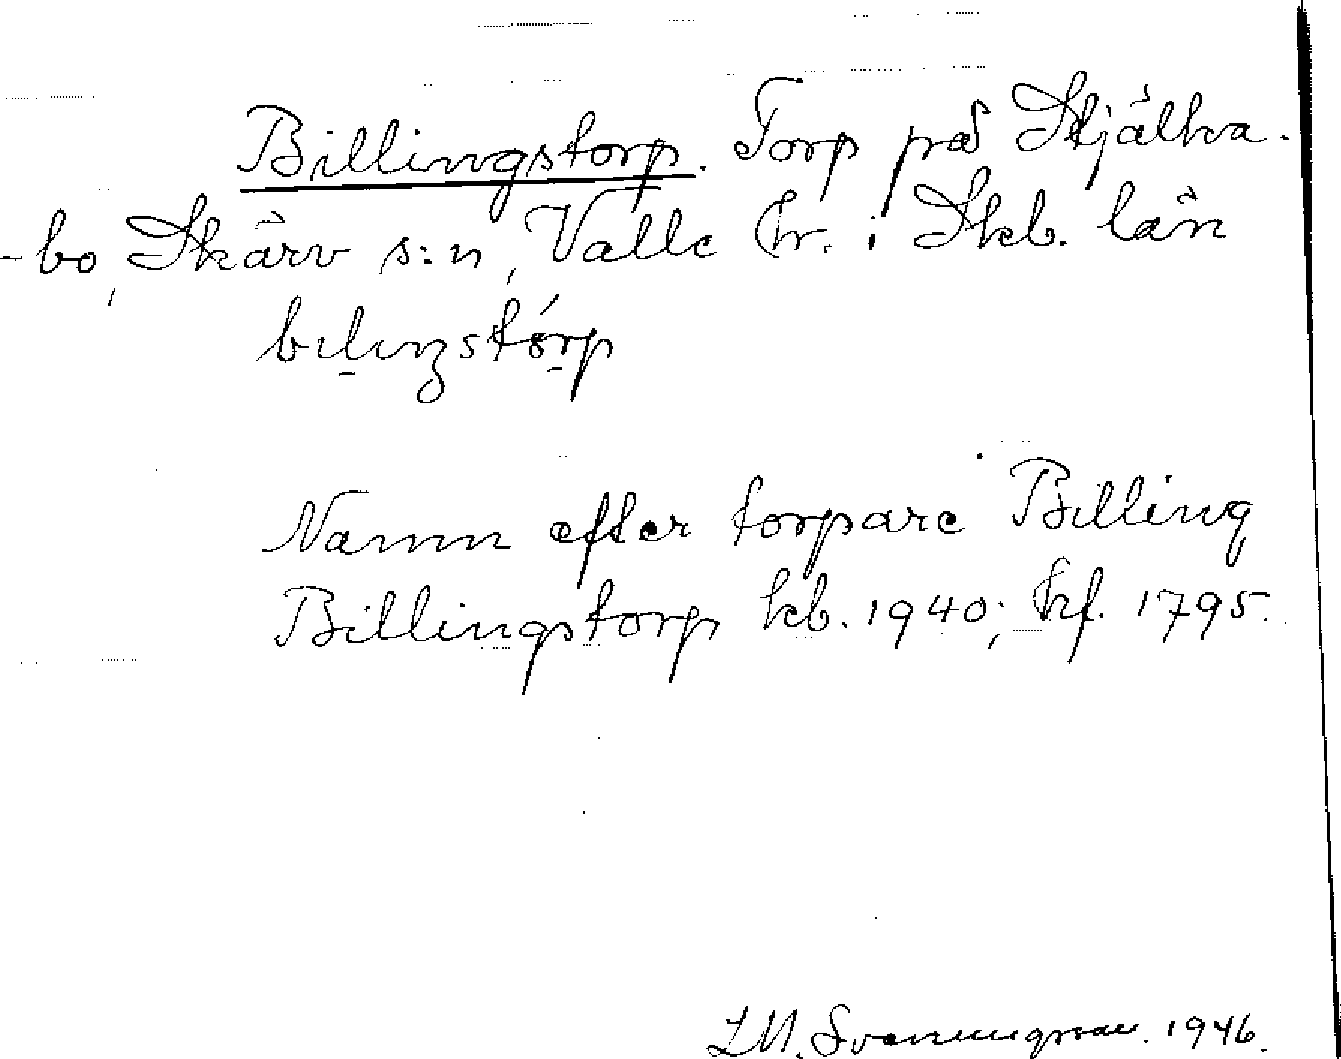 Billingstorp. Torp på Skjälva-
-bo, Skärv s:n, Valle hr. i Skb. län
bilıŋstórp
Namn efter torpare Billing
Billingstorp kb. 1940; kf. 1795.
L.M. Svenungsson. 1946.